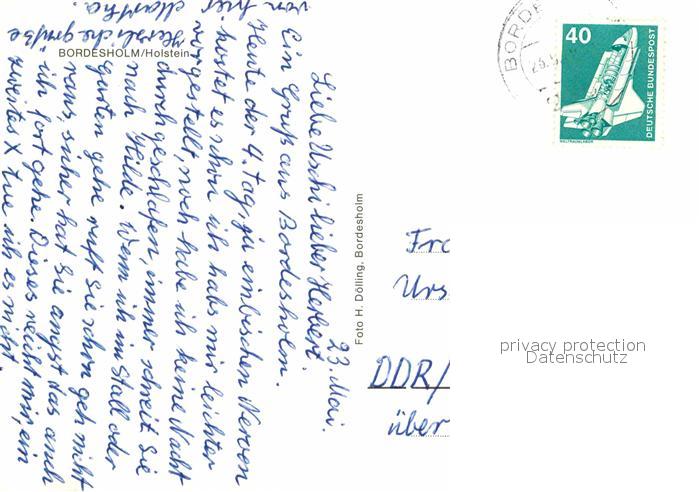 BORDESHOLM/Holstein
23. Mai.
Liebe Uschi lieber Herbert.
Ein Gruß aus Bordesholm.
Heute der 4. Tag, ja ein bischen Nerven
kostet es schon ich habs mir leichter
vorgestellt, noch habe ich keine Nacht
durchgeschlafen, immer schreit Sie
nach Hilde. Wenn ich im Stall oder
garten gehe ruft Sie schon geh nicht
raus, sicher hat Sie angst das auch
ich fort gehe. Dieses reicht mir, ein
zweites X tue ich es nicht.
Herzliche grüße
von hier Martha.
Foto H. Dölling, Bordesholm
BORDE
40
DEUTSCHE BUNDESPOST
WELTRAUMLABOR
Fra
Urs
DDR/
über
privacy protection
Datenschutz